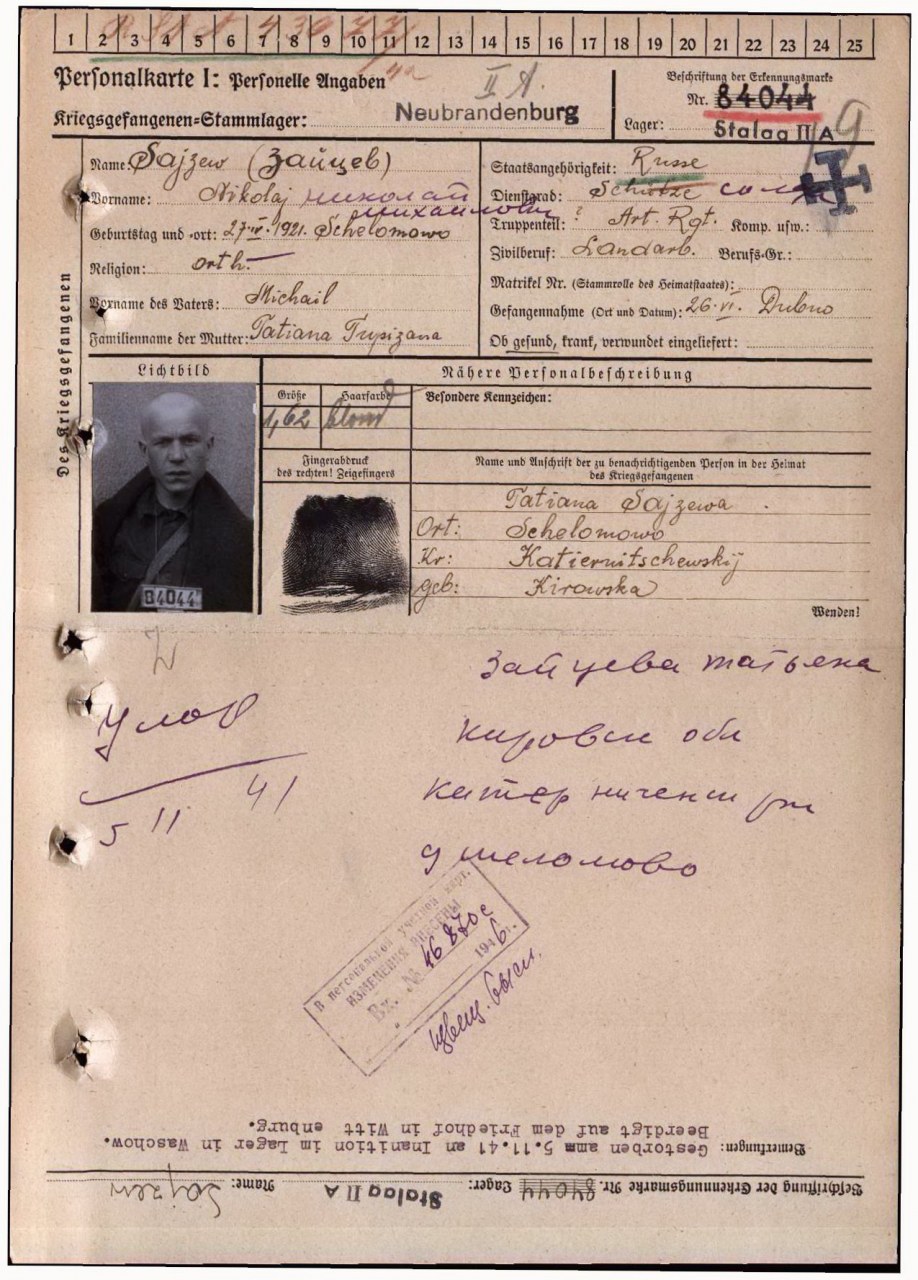 1 2 3 4 5 6 7 8 9 10 11 12 13 14 15 16 17 18 19 20 21 22 23 24 25
Personalkarte I: Personelle Angaben
II A
Kriegsgefangenen-Stammlager: Neubrandenburg
Beschriftung der Erkennungsmarke
Nr. 84044
Lager: Stalag II A
Des Kriegsgefangenen
Name: Sajzew (Зайцев)
Vorname: Nikolaj николай
михайлович
Geburtstag und -ort: 27.IV.1921. Schelomowo
Religion: orth.
Vorname des Vaters: Michail
Familienname der Mutter: Tatiana Trysizana
Staatsangehörigkeit: Russe
Dienstgrad: Schütze
Truppenteil: ? Art. Rgt. Komp. usw.:
Zivilberuf: Landarb. Berufs-Gr.:
Matrikel Nr. (Stammrolle des Heimatstaates):
Gefangennahme (Ort und Datum): 26.VI. Dubno
Ob gesund, krank, verwundet eingeliefert:
Lichtbild
84044
Nähere Personalbeschreibung
Größe Haarfarbe
1,62 blond
Besondere Kennzeichen:
Fingerabdruck
des rechten! Zeigefingers
Name und Anschrift der zu benachrichtigenden Person in der Heimat
des Kriegsgefangenen
Tatiana Sajzewa
Ort: Schelomowo
Kr: Katiernitschewskij
geb: Kirowska
Wenden!
Зайцева татьена
кировск обл
катерниченск рн
д шеломово
5 11 41
В персональной учетной карт.
ИЗМЕНЕНИЯ ВНЕСЕНЫ
Вх. № 46870с
1946.
Bemerkungen: Gestorben amm 5.11.41 an Inanition im Lager in Waschow.
Beerdigt auf dem Friedhof in Witt enburg.
Beschriftung der Erkennungsmarke Nr. 84044 Lager: Stalag II A Name: Sajzew